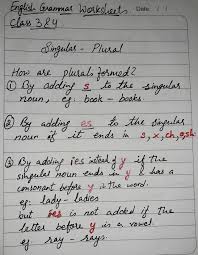 English Grammar Worksheets Date / /
Class 3 & 4
Singular - Plural
How are plurals formed?
① By adding s to the singular
noun, eg. book - books.
② By adding es to the singular
noun if it ends in s, x, ch, o, sh
③ By adding ies instead of y if the
singular noun ends in y & has a
consonant before y in the word.
eg. lady - ladies
but ies is not added if the
letter before y is a vowel.
eg. ray - rays.